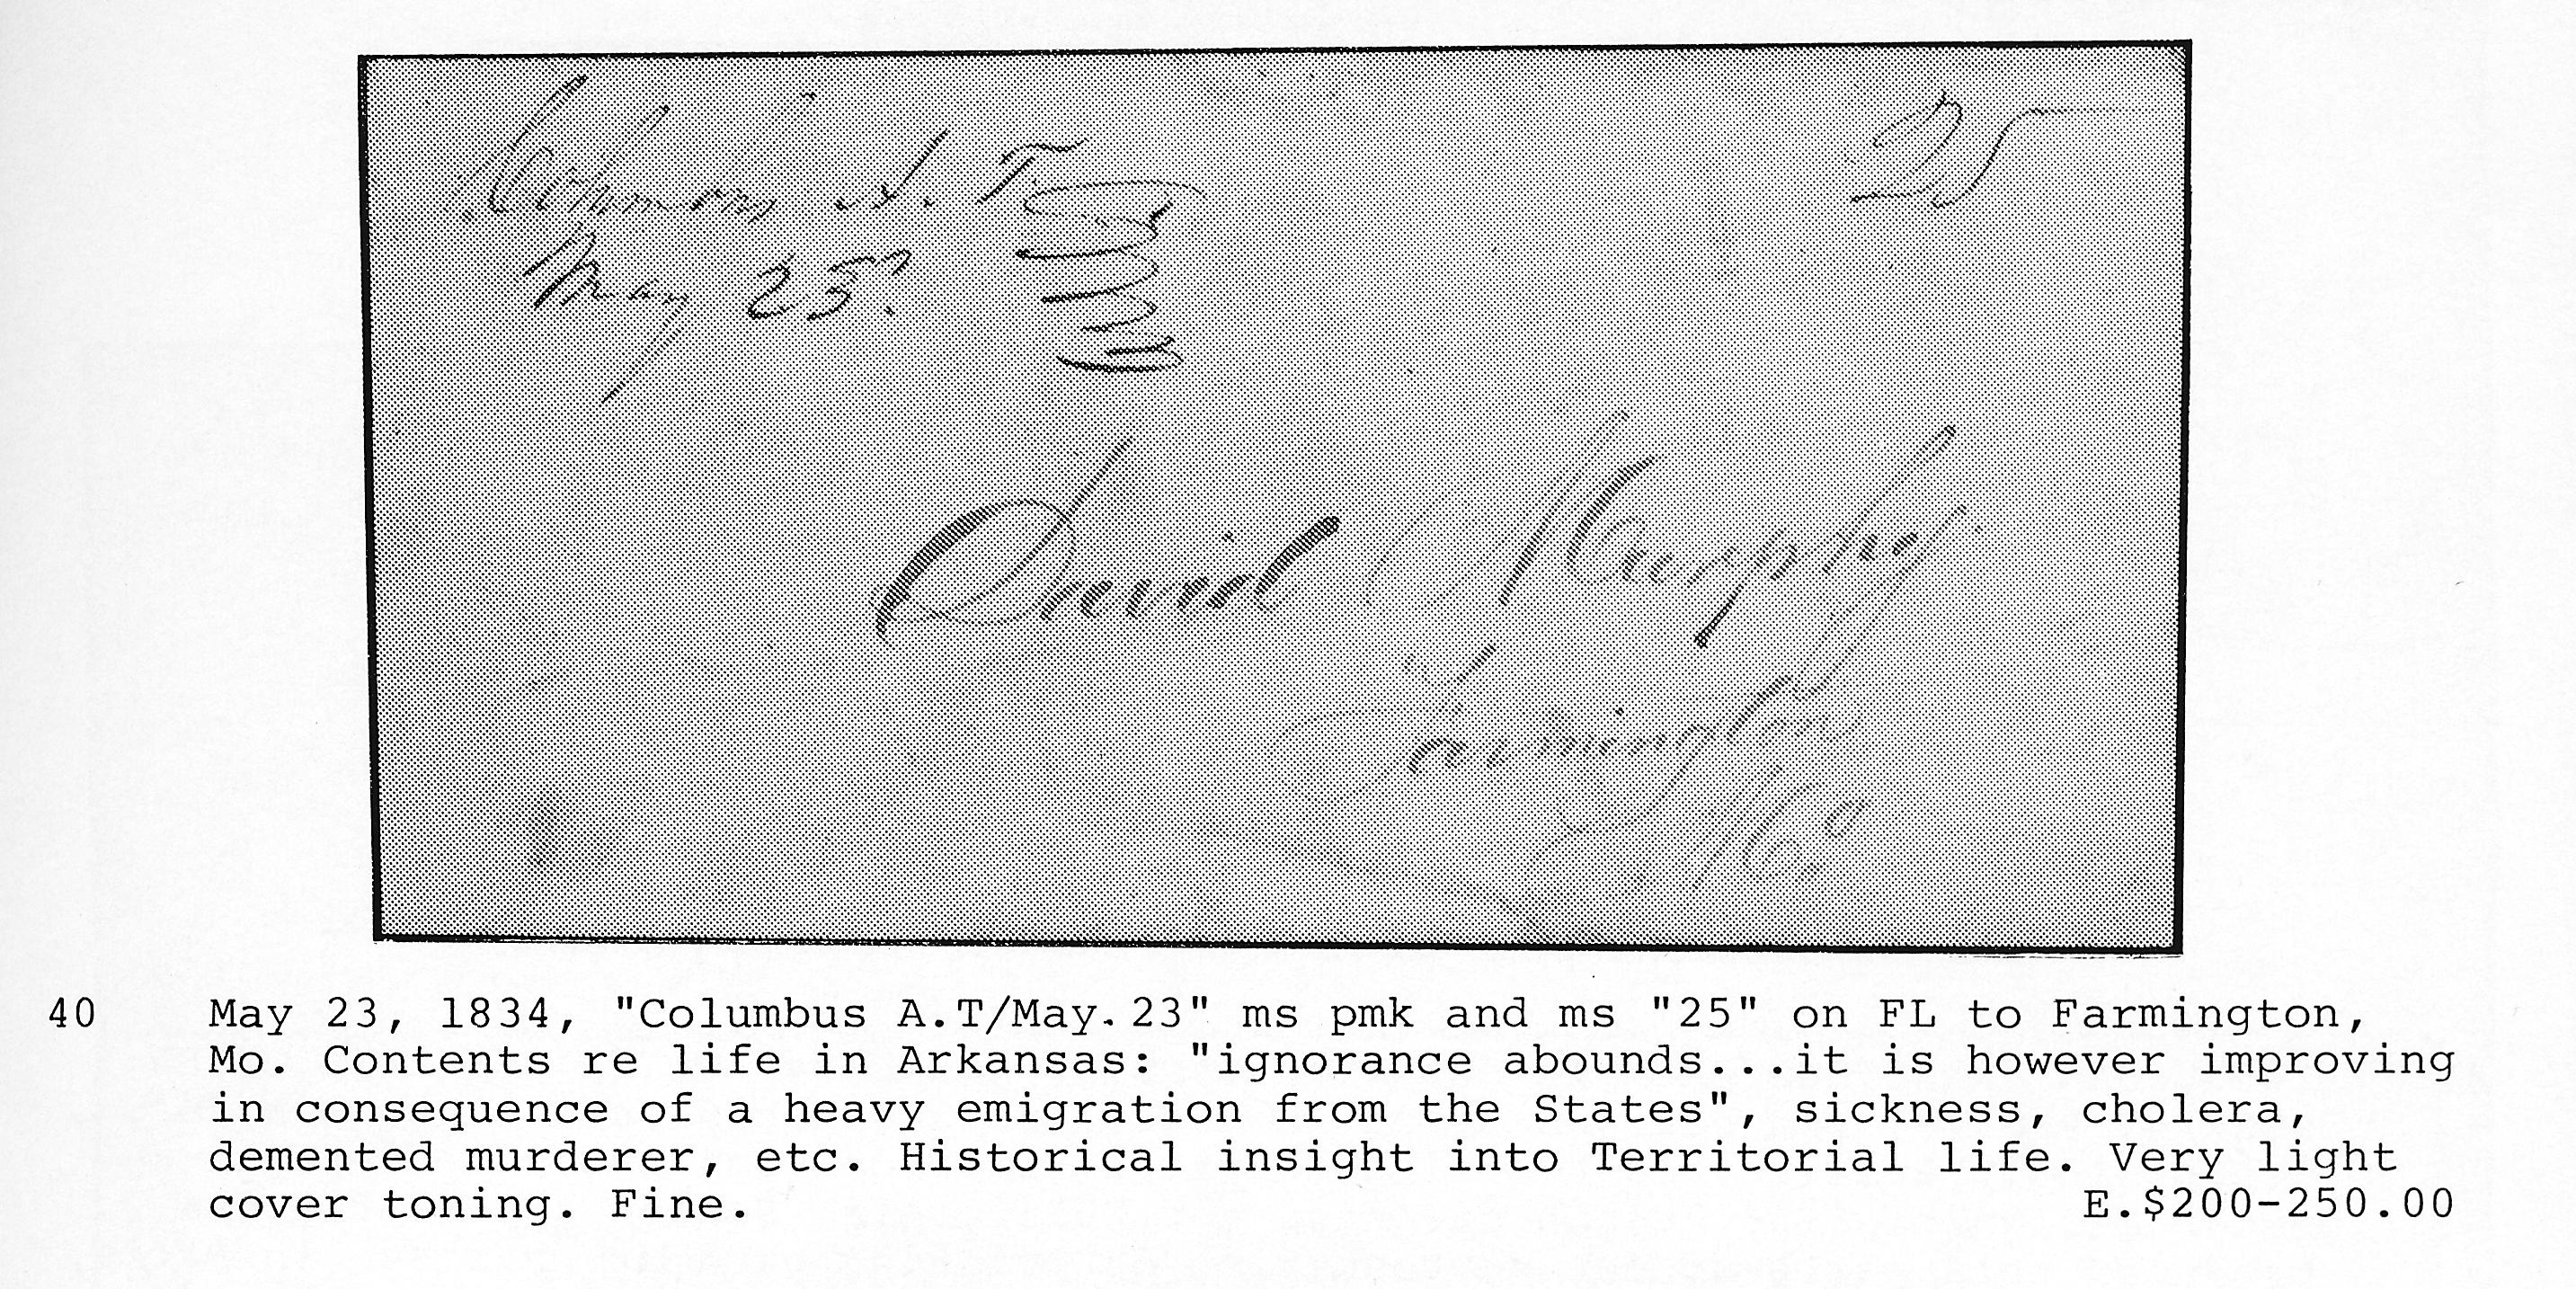 Columbus A.T
25
May 23?
David Murphy.
Farmington
Mo.
40 May 23, 1834, "Columbus A.T/May.23" ms pmk and ms "25" on FL to Farmington,
Mo. Contents re life in Arkansas: "ignorance abounds...it is however improving
in consequence of a heavy emigration from the States", sickness, cholera,
demented murderer, etc. Historical insight into Territorial life. Very light
cover toning. Fine. E.$200-250.00